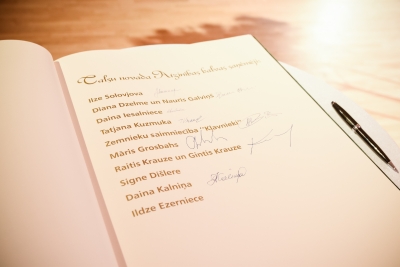 Talsu novada Atzinības balvas saņēmēji
Ilze Solovjova
Diana Dzelme un Nauris Galviņš
Daina Ieselniece
Tatjana Kuzmuka
Zemnieku saimniecība "Kļavnieki"
Māris Grosbahs
Raitis Krauze un Gintis Krauze
Signe Dišlere
Daina Kalniņa
Ildze Ezerniece